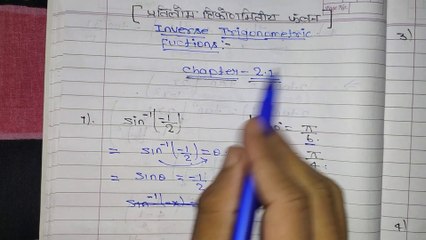 [ प्रतिलोम त्रिकोणमितीय फलन ]
Inverse Trigonometric
Fuctions:-
Chapter - 2.1
1). sin⁻¹(-1/2)
= sin⁻¹(-1/2) = θ
= sinθ = -1/2
= π/6
3)
4)